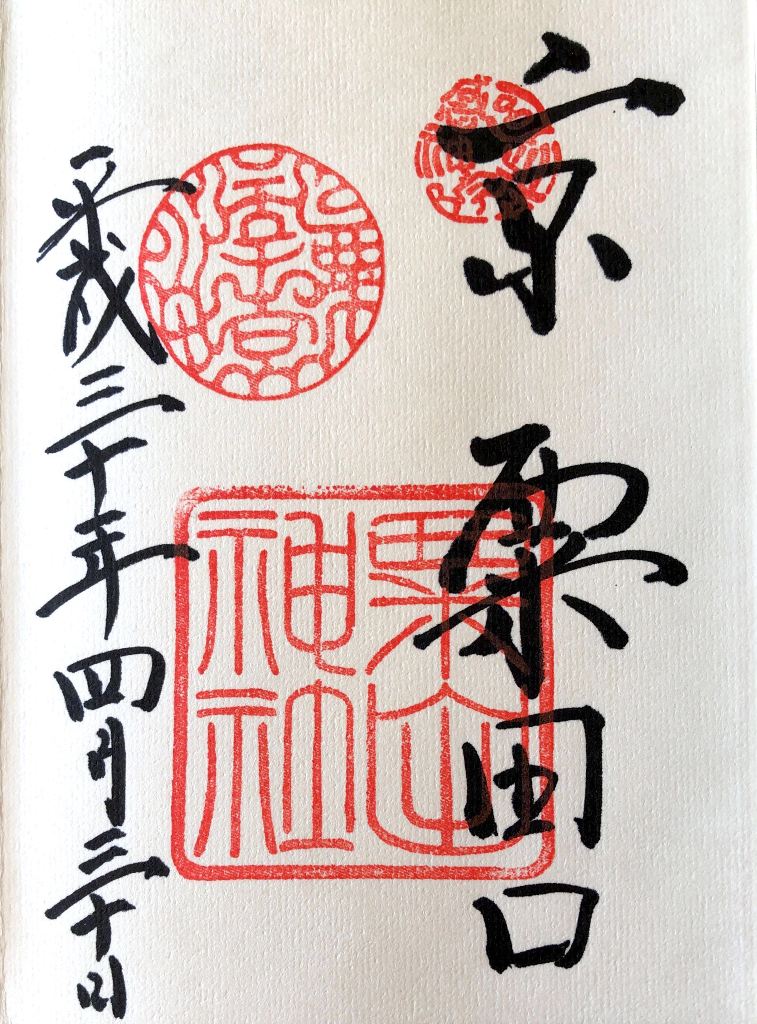 京 粟田口
粟田神社
平成三十年四月三十日